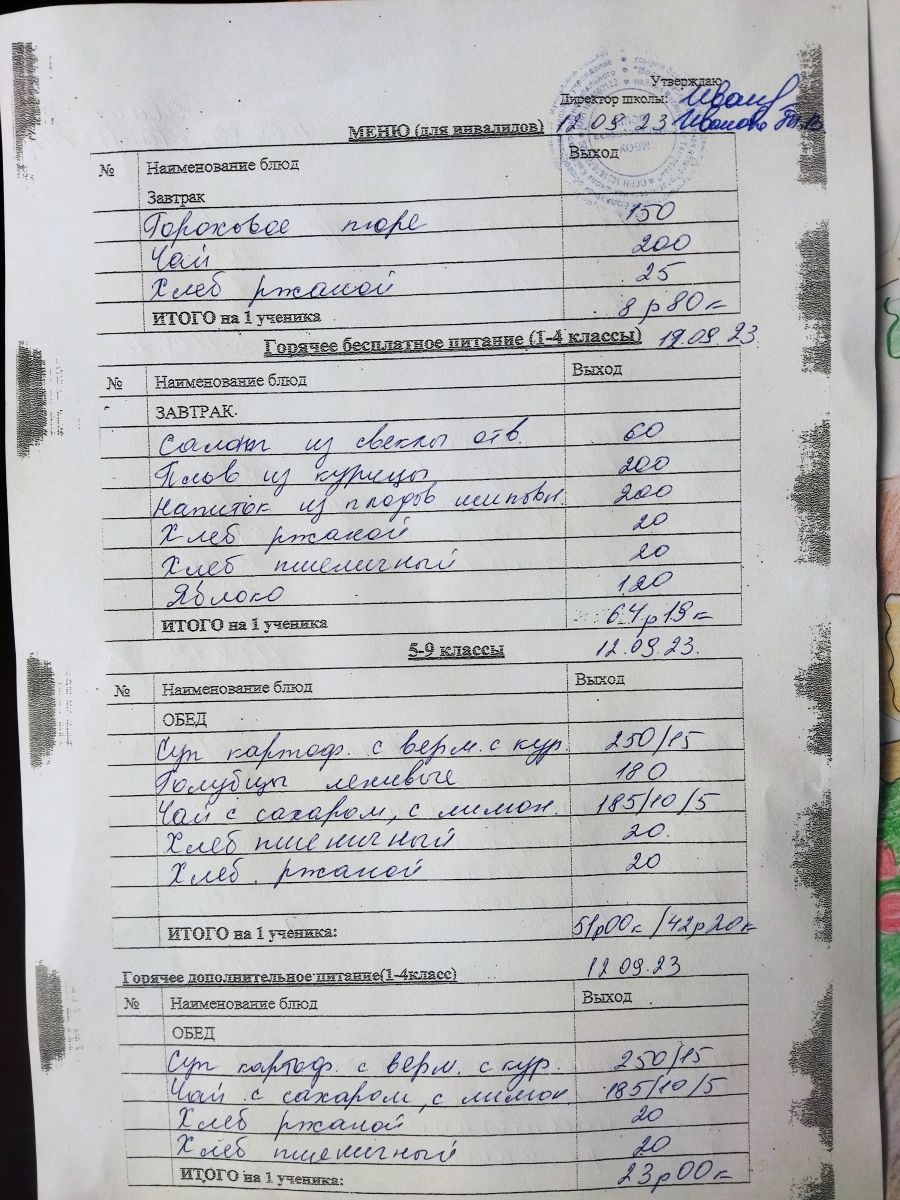 Утверждаю
Директор школы:
МЕНЮ (для инвалидов) 12.09.23 Иванова
№ Наименование блюд Выход
Завтрак
Гороховое пюре 150
Чай 200
Хлеб ржаной 25
ИТОГО на 1 ученика 8р80к
Горячее бесплатное питание (1-4 классы) 12.09.23.
№ Наименование блюд Выход
ЗАВТРАК.
Салат из свеклы отв. 60
Плов из курицы 200
Напиток из плодов шиповн. 200
Хлеб ржаной 20
Хлеб пшеничный 20
Яблоко 120
ИТОГО на 1 ученика 64р19к
5-9 классы 12.09.23.
№ Наименование блюд Выход
ОБЕД
Суп картоф. с верм. с кур. 250/15
Голубцы ленивые 180
Чай с сахаром, с лимон. 185/10/5
Хлеб пшеничный 20.
Хлеб ржаной 20
ИТОГО на 1 ученика: 51р00к/42р20к
Горячее дополнительное питание(1-4класс) 12.09.23
№ Наименование блюд Выход
ОБЕД
Суп картоф. с верм. с кур. 250/15
Чай с сахаром, с лимон. 185/10/5
Хлеб ржаной 20
Хлеб пшеничный 20
ИТОГО на 1 ученика: 23р00к